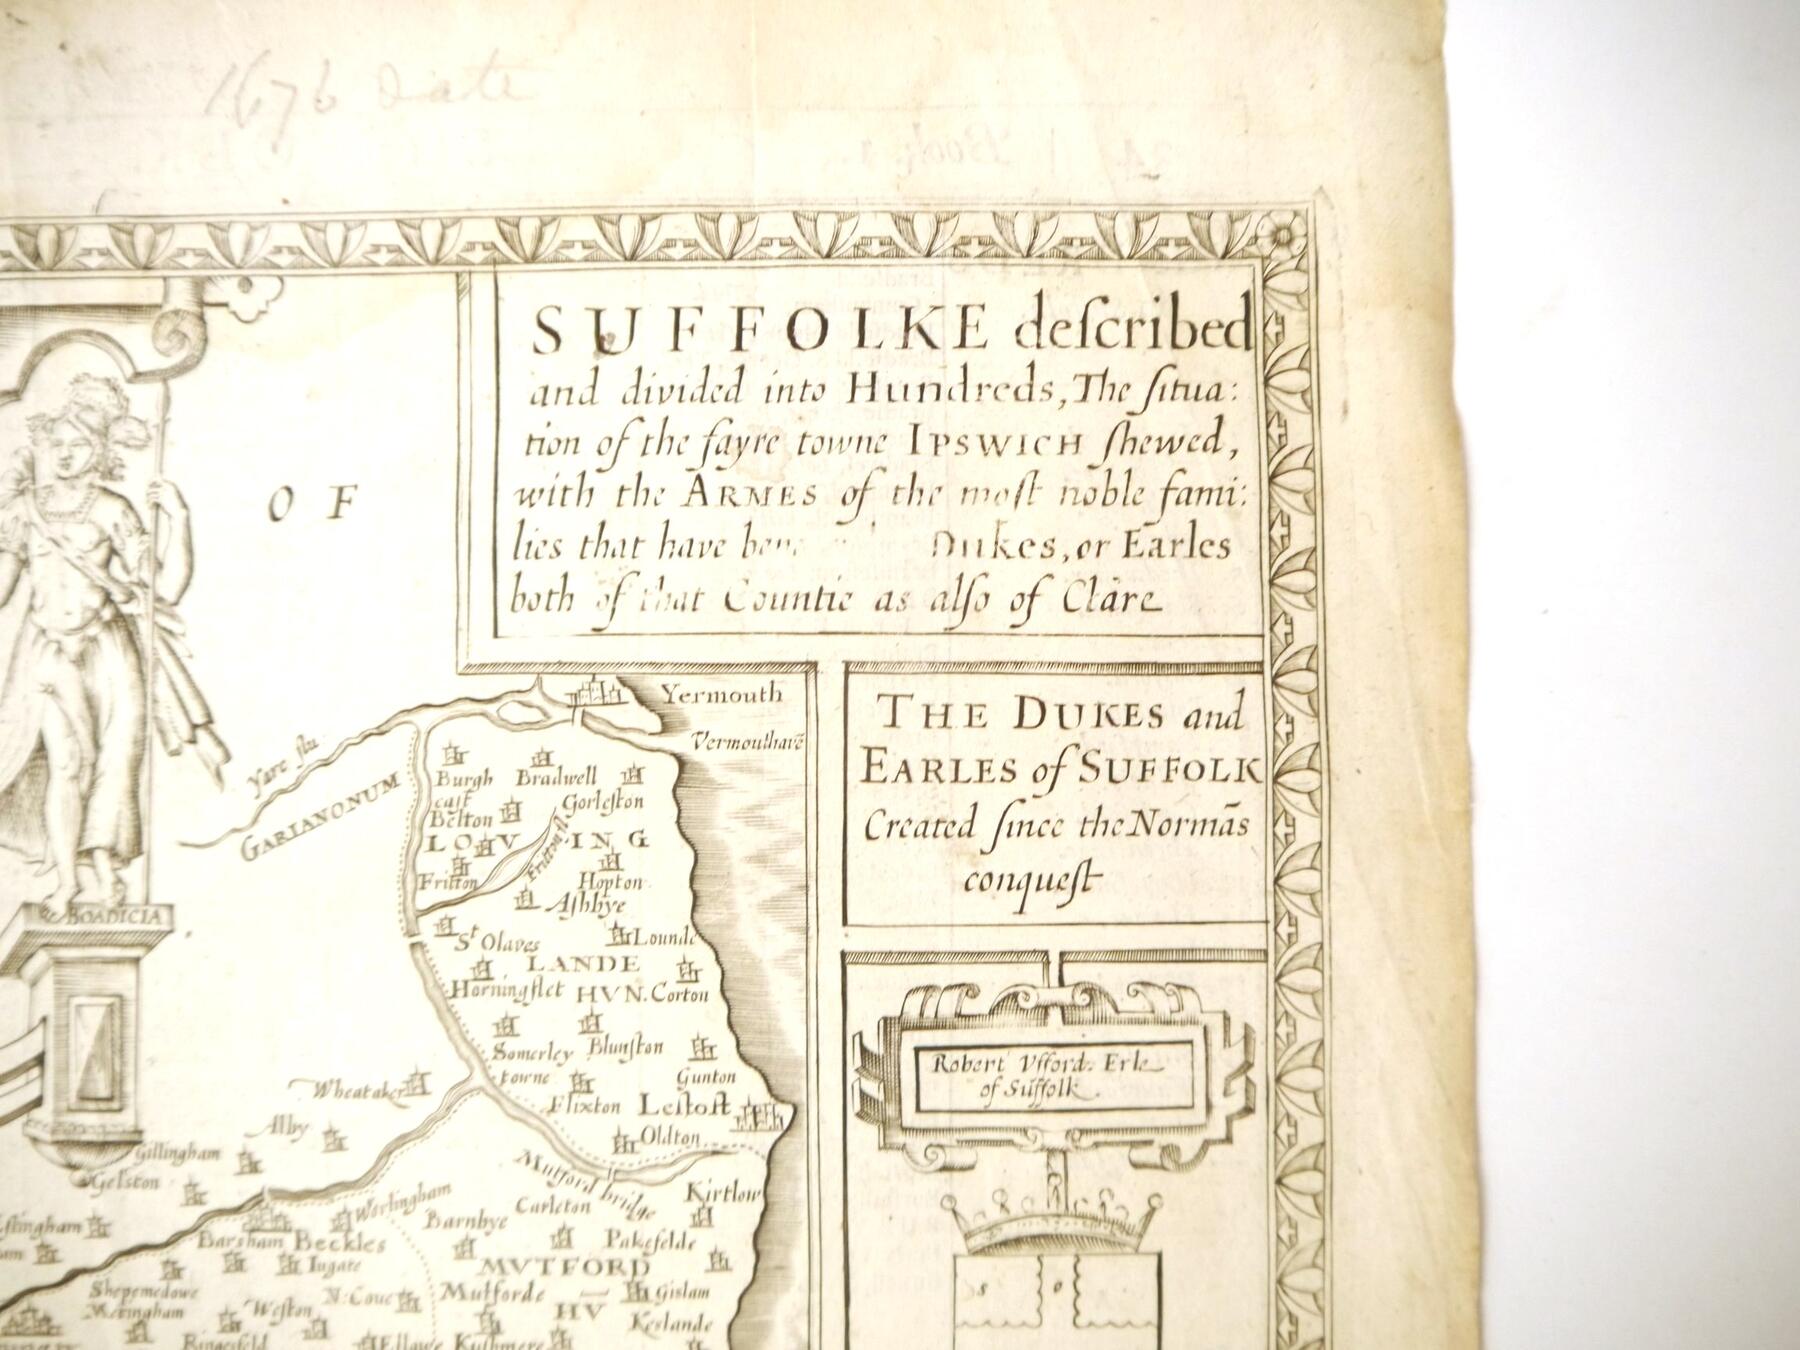 1676 Date
SUFFOLKE deſcribed
and divided into Hundreds, The ſitua:
tion of the fayre towne IPSWICH ſhewed,
with the ARMES of the moſt noble fami:
lies that have bene Dukes, or Earles
both of that Countie as alſo of Clare
OF
BOADICIA
Yermouth
Yare flu
GARIANONUM
Burgh
caſt
Bradwell
Gorleſton
Belton
LOV ING
Fritton
Hopton
Aſhbye
St Olaves
Lounde
LANDE
Horningflet
HVN.
Corton
Somerley
towne
Blunſton
Gunton
Wheataker
Flixton
Leſtoft
Alby
Oldton
Gillingham
Gelston
Mutford bridge
Kirtlow
Worlingham
Carleton
Barnbye
Barsham
Beckles
Pakefelde
Ingate
MVTFORD
HV
Shepemedowe
Metingham
Weſton
N: Coue
Mutforde
Gislam
Keslande
Ringesfeld
Ellowe
Kuſhmere
THE DUKES and
EARLES of SUFFOLK
Created ſince the Normās
conqueſt
Robert Vfford. Erle
of Suffolk